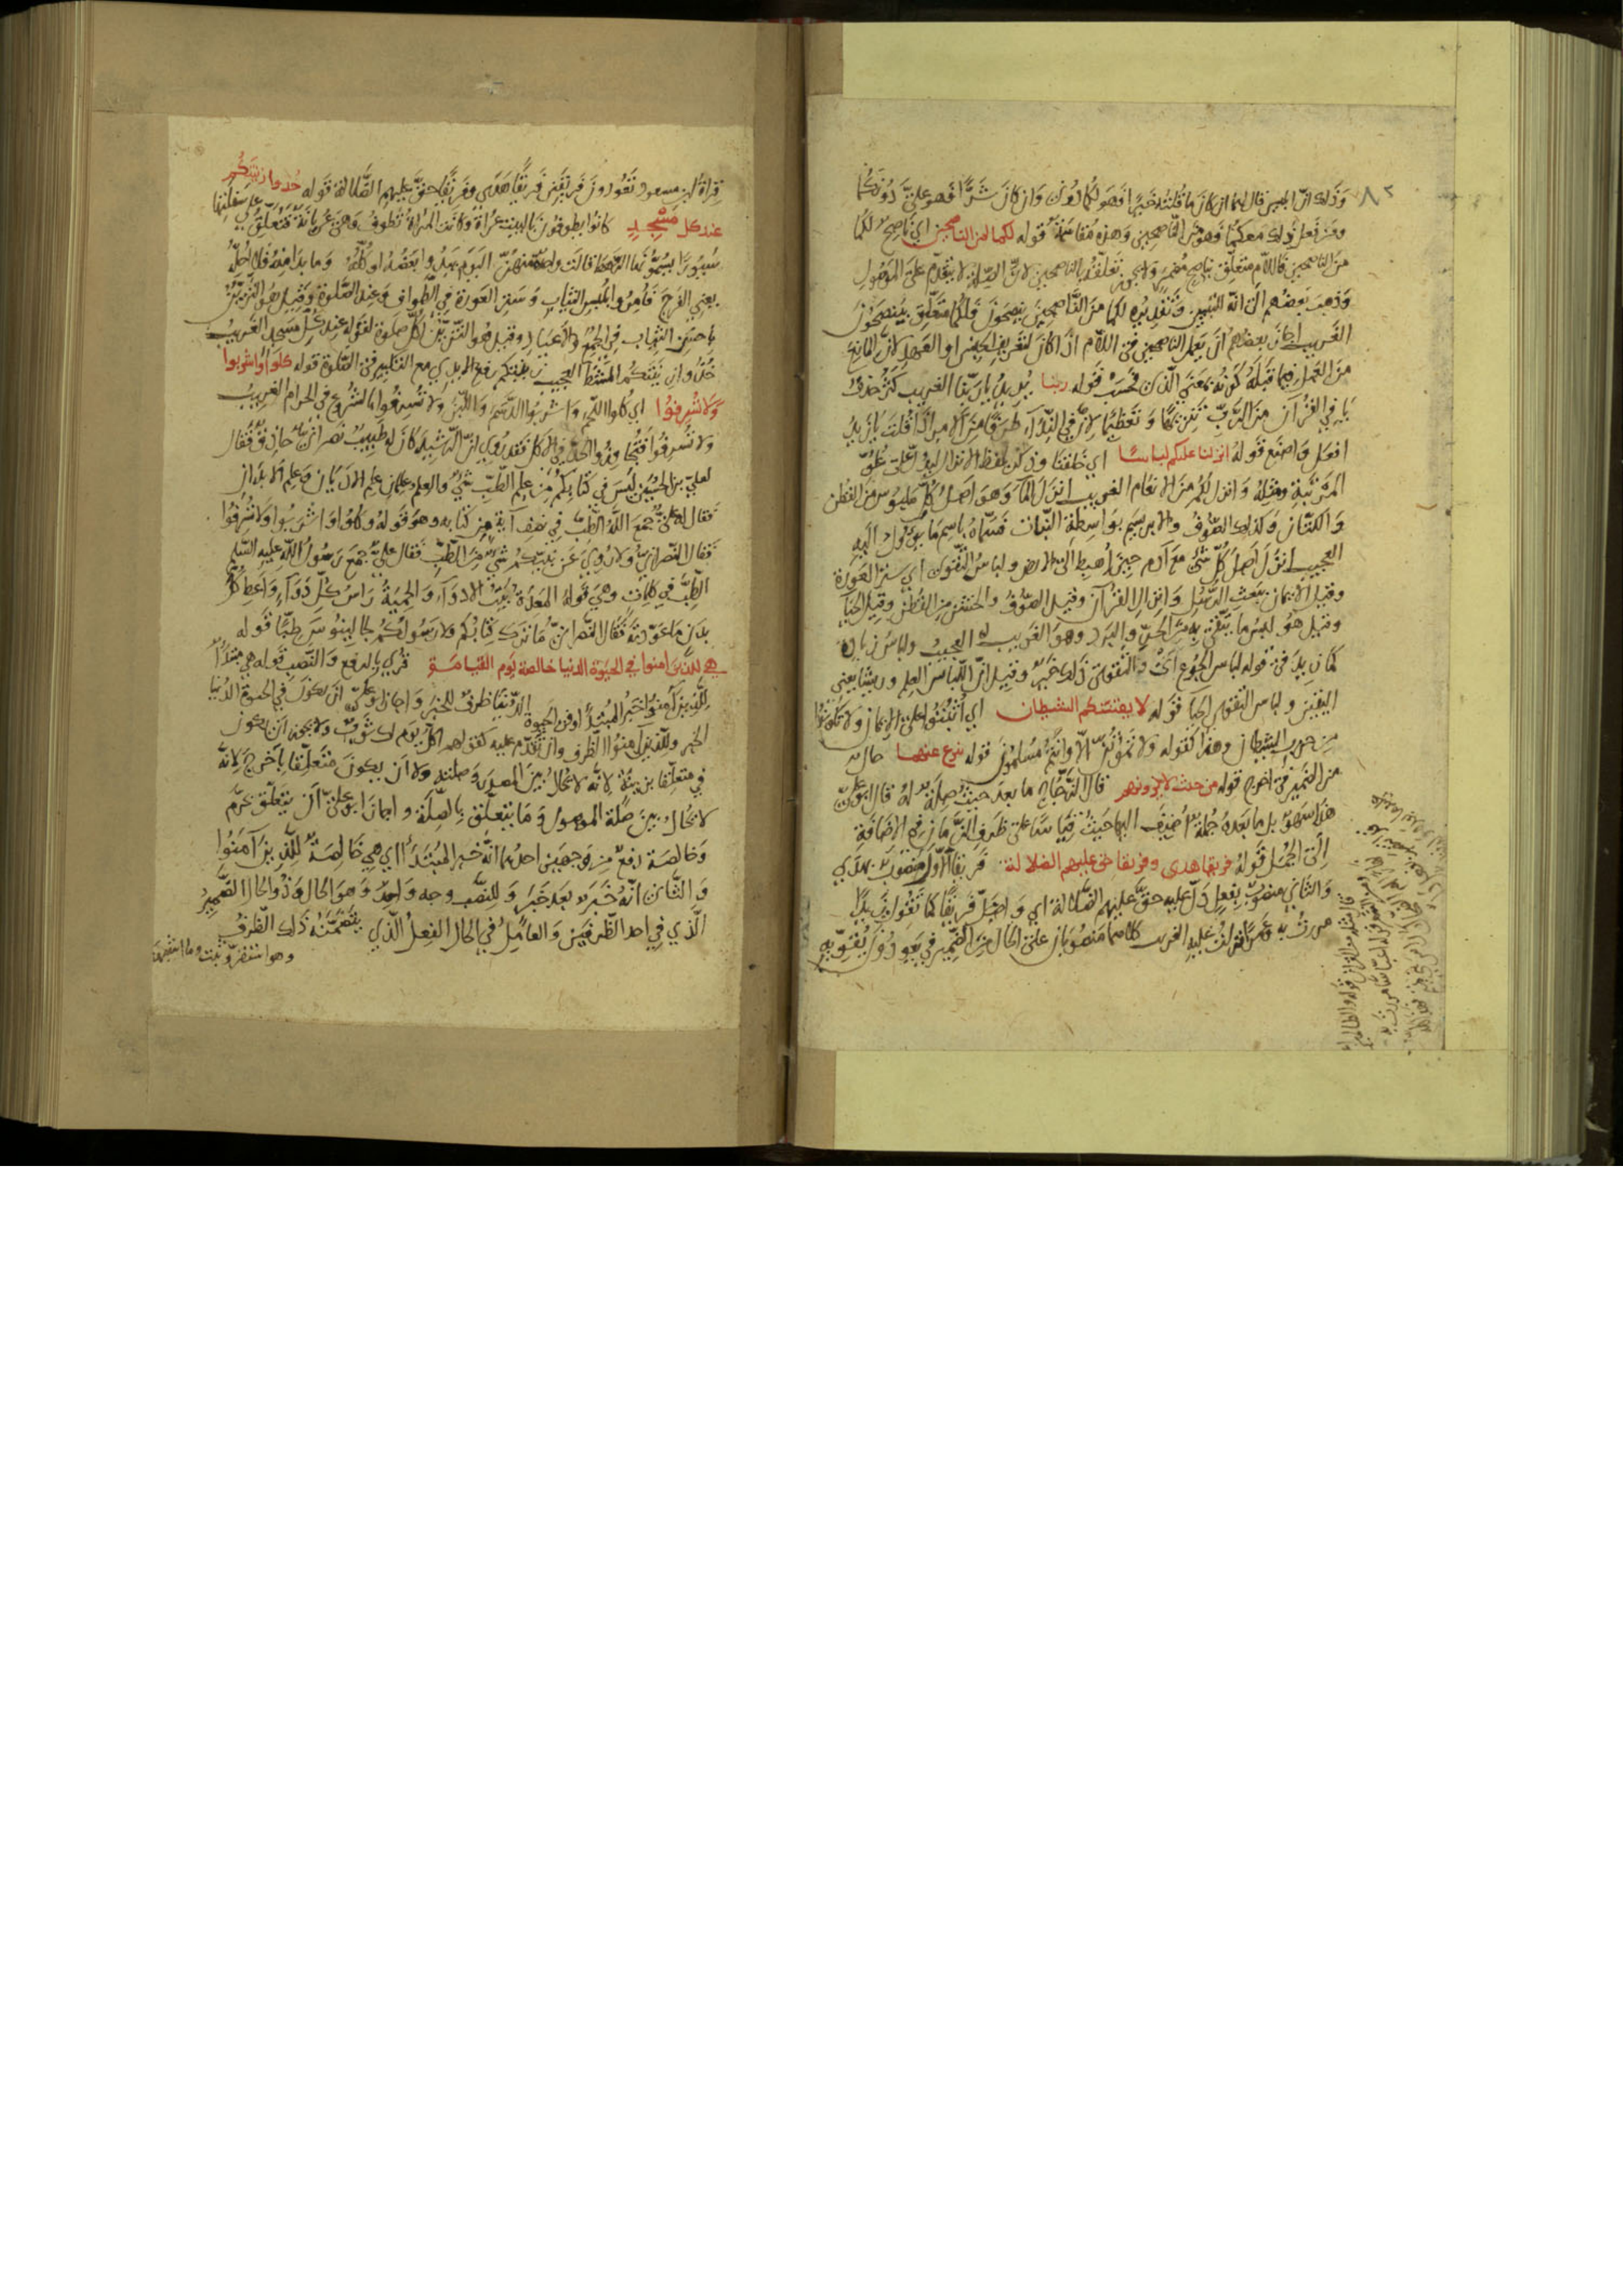 وذلك ان ابليس قال لهما ان كان ما قلته خيرا فهو لكما دونى وان كان شرا فهو علىّ دونكما
ومن فعل ذلك معكما فهو من الناصحين وهذه مقاسمة قوله لكما لمن الناصحين اي ناصح لكما
من الناصحين فاللام متعلق بناصح مضمر ولا يجوز تعلقه بالناصحين لان الصلة لا يتقدم على الموصول
وذهب بعضهم الى انه التبيين وتقديره لكما من الناصحين ينصحون فلكما متعلق بينصحون
الغريب اجاز بعضهم ان يعمل الناصحين في اللام اذا كان لتعريف الجنس او العهد لان المانع
من العمل فيما قبله كونه بمعنى الذي فحسب قوله ربنا يريد يا ربنا الغريب كثر حذف
يا في القرآن من الرب تنزيها وتعظيما لان في النداء طرفا من الامر اذا قلت يا زيد
افعل واصنع قوله انزلنا عليكم لباسا اي خلقنا وذكر بلفظ الانزال ليدل على علو
المرتبة ومثله وانزل لكم من الانعام الغريب انزل الماء وهو اصل كل ملبوس من القطن
والكتان وكذلك الصوف والابريسم بواسطة النبات فسماه باسم ما يؤول اليه
العجيب انزل اصل كل شئ مع آدم حين اهبط الى الارض ولباس التقوى اي ستر العورة
وقيل الايمان ببعث الرسل وانزال القرآن وقيل الصوف والخشن من القطن وقيل الحيا
وقيل هو لبس ما يتقى به من الحر والبرد وهو الغريب العجيب ولباس زيادة
كما زيد في قوله لباس الجوع اي والتقوى ذلك خير وقيل ان اللباس العلم وريشا يعني
اليقين ولباس التقوى الحيا قوله لا يفتننكم الشيطان اي اثبتوا على الايمان ولا تكونوا
من حزب الشيطان وهذا كقوله ولا تموتن الا وانتم مسلمون قوله ينزع عنهما حال
من الضمير في اخرج قوله من حيث لا ترونهم قال الزجاج ما بعد حيث صلة له قال ابو علي
هذا سهو بل ما بعده جملة اضيف اليها حيث قياسا على ظروف الزمان في الاضافة
الى الجمل قوله فريقا هدى وفريقا حق عليهم الضلالة فريقا الاول منصوب بهدى
والثاني منصوب بفعل دل عليه حق عليهم الضلالة اي واضل فريقا كما تقول زيدا
مررت به وعمرا نزلت عليه الغريب كلاهما منصوبان على الحال من الضمير في تعودون يقويه
قراءة ابن مسعود تعودون فريقين فريقا هدى وفريقا حق عليهم الضلالة قوله خذوا زينتكم
عند كل مسجد كانوا يطوفون بالبيت عراة وكانت المراة تطوف وهي عريانة فتعلق على سفلتها
سيورا يسمونها الرهط قالت واحدة منهن اليوم يبدو بعضه او كله وما بدا منه فلا احله
يعني الفرج فامروا بلبس الثياب وستر العورة في الطواف وعند الصلوة وقيل هو التزين
باحسن الثياب في الجمع والاعياد وقيل هو التزين لكل صلوة لقوله عند كل مسجد الغريب
خذوا زينتكم المشط العجيب زينتكم رفع الايدي مع التكبير في الصلوة قوله كلوا واشربوا
ولا تسرفوا اي كلوا اللحم واشربوا الدسم واللبن ولا تسرفوا بالشروع في الحرام الغريب
ولا تسرفوا فتجاوزوا الحد في الاكل فقد روي ان الرشيد كان له طبيب نصراني حاذق فقال
لعلي بن الحسين ليس في كتابكم من علم الطب شئ والعلم علمان علم الاديان وعلم الابدان
فقال له علي جمع الله الطب في نصف آية من كتابه وهو قوله وكلوا واشربوا ولا تسرفوا
فقال النصراني ولا روي عن نبيكم شئ من الطب فقال علي جمع رسول الله عليه السلم
الطب في كلمات وهي قوله المعدة بيت الادواء والحمية راس كل دواء واعط كل
بدن ما عودته فقال النصراني ما ترك كتابكم ولا رسولكم لجالينوس طبا قوله
هي للذين امنوا في الحيوة الدنيا خالصة يوم القيامة قرئ بالرفع والنصب قوله هي مبتدأ
للذين آمنوا خبر المبتدأ وفي الحيوة الدنيا ظرف للخبر واجاز ابو علي ان يكون في الحيوة الدنيا
الخبر وللذين آمنوا الظرف وان تقدم عليه كقولهم اكل يوم لك ثوب ولا يجوز ان يكون
في متعلقا بزينة لانه لا يحال بين المصدر وصلته ولا ان يكون متعلقا باخرج لانه
لا يحال بين صلة الموصول وما يتعلق بالصلة واجاز ابو علي ان يتعلق بحرم
وخالصة رفع من وجهين احدهما انه خبر المبتدأ اي هي خالصة للذين آمنوا
والثاني انه خبر بعد خبر وللنصب وجه واحد وهو الحال وذو الحال الضمير
الذي في احد الظرفين والعامل في الحال الفعل الذي يتضمنه ذلك الظرف
وهو استقر وثبت وما اشبهه